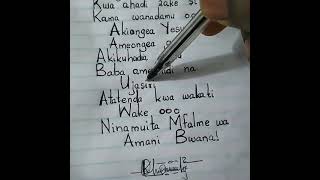 Kwa ahadi zake
Kama wanadamu
Akiongea Yesu
Ameongea
Akikuhada
Baba
Ujasiri
Atatenda kwa wakati
Wake ooo
Ninamuita Mfalme wa
Amani Bwana!